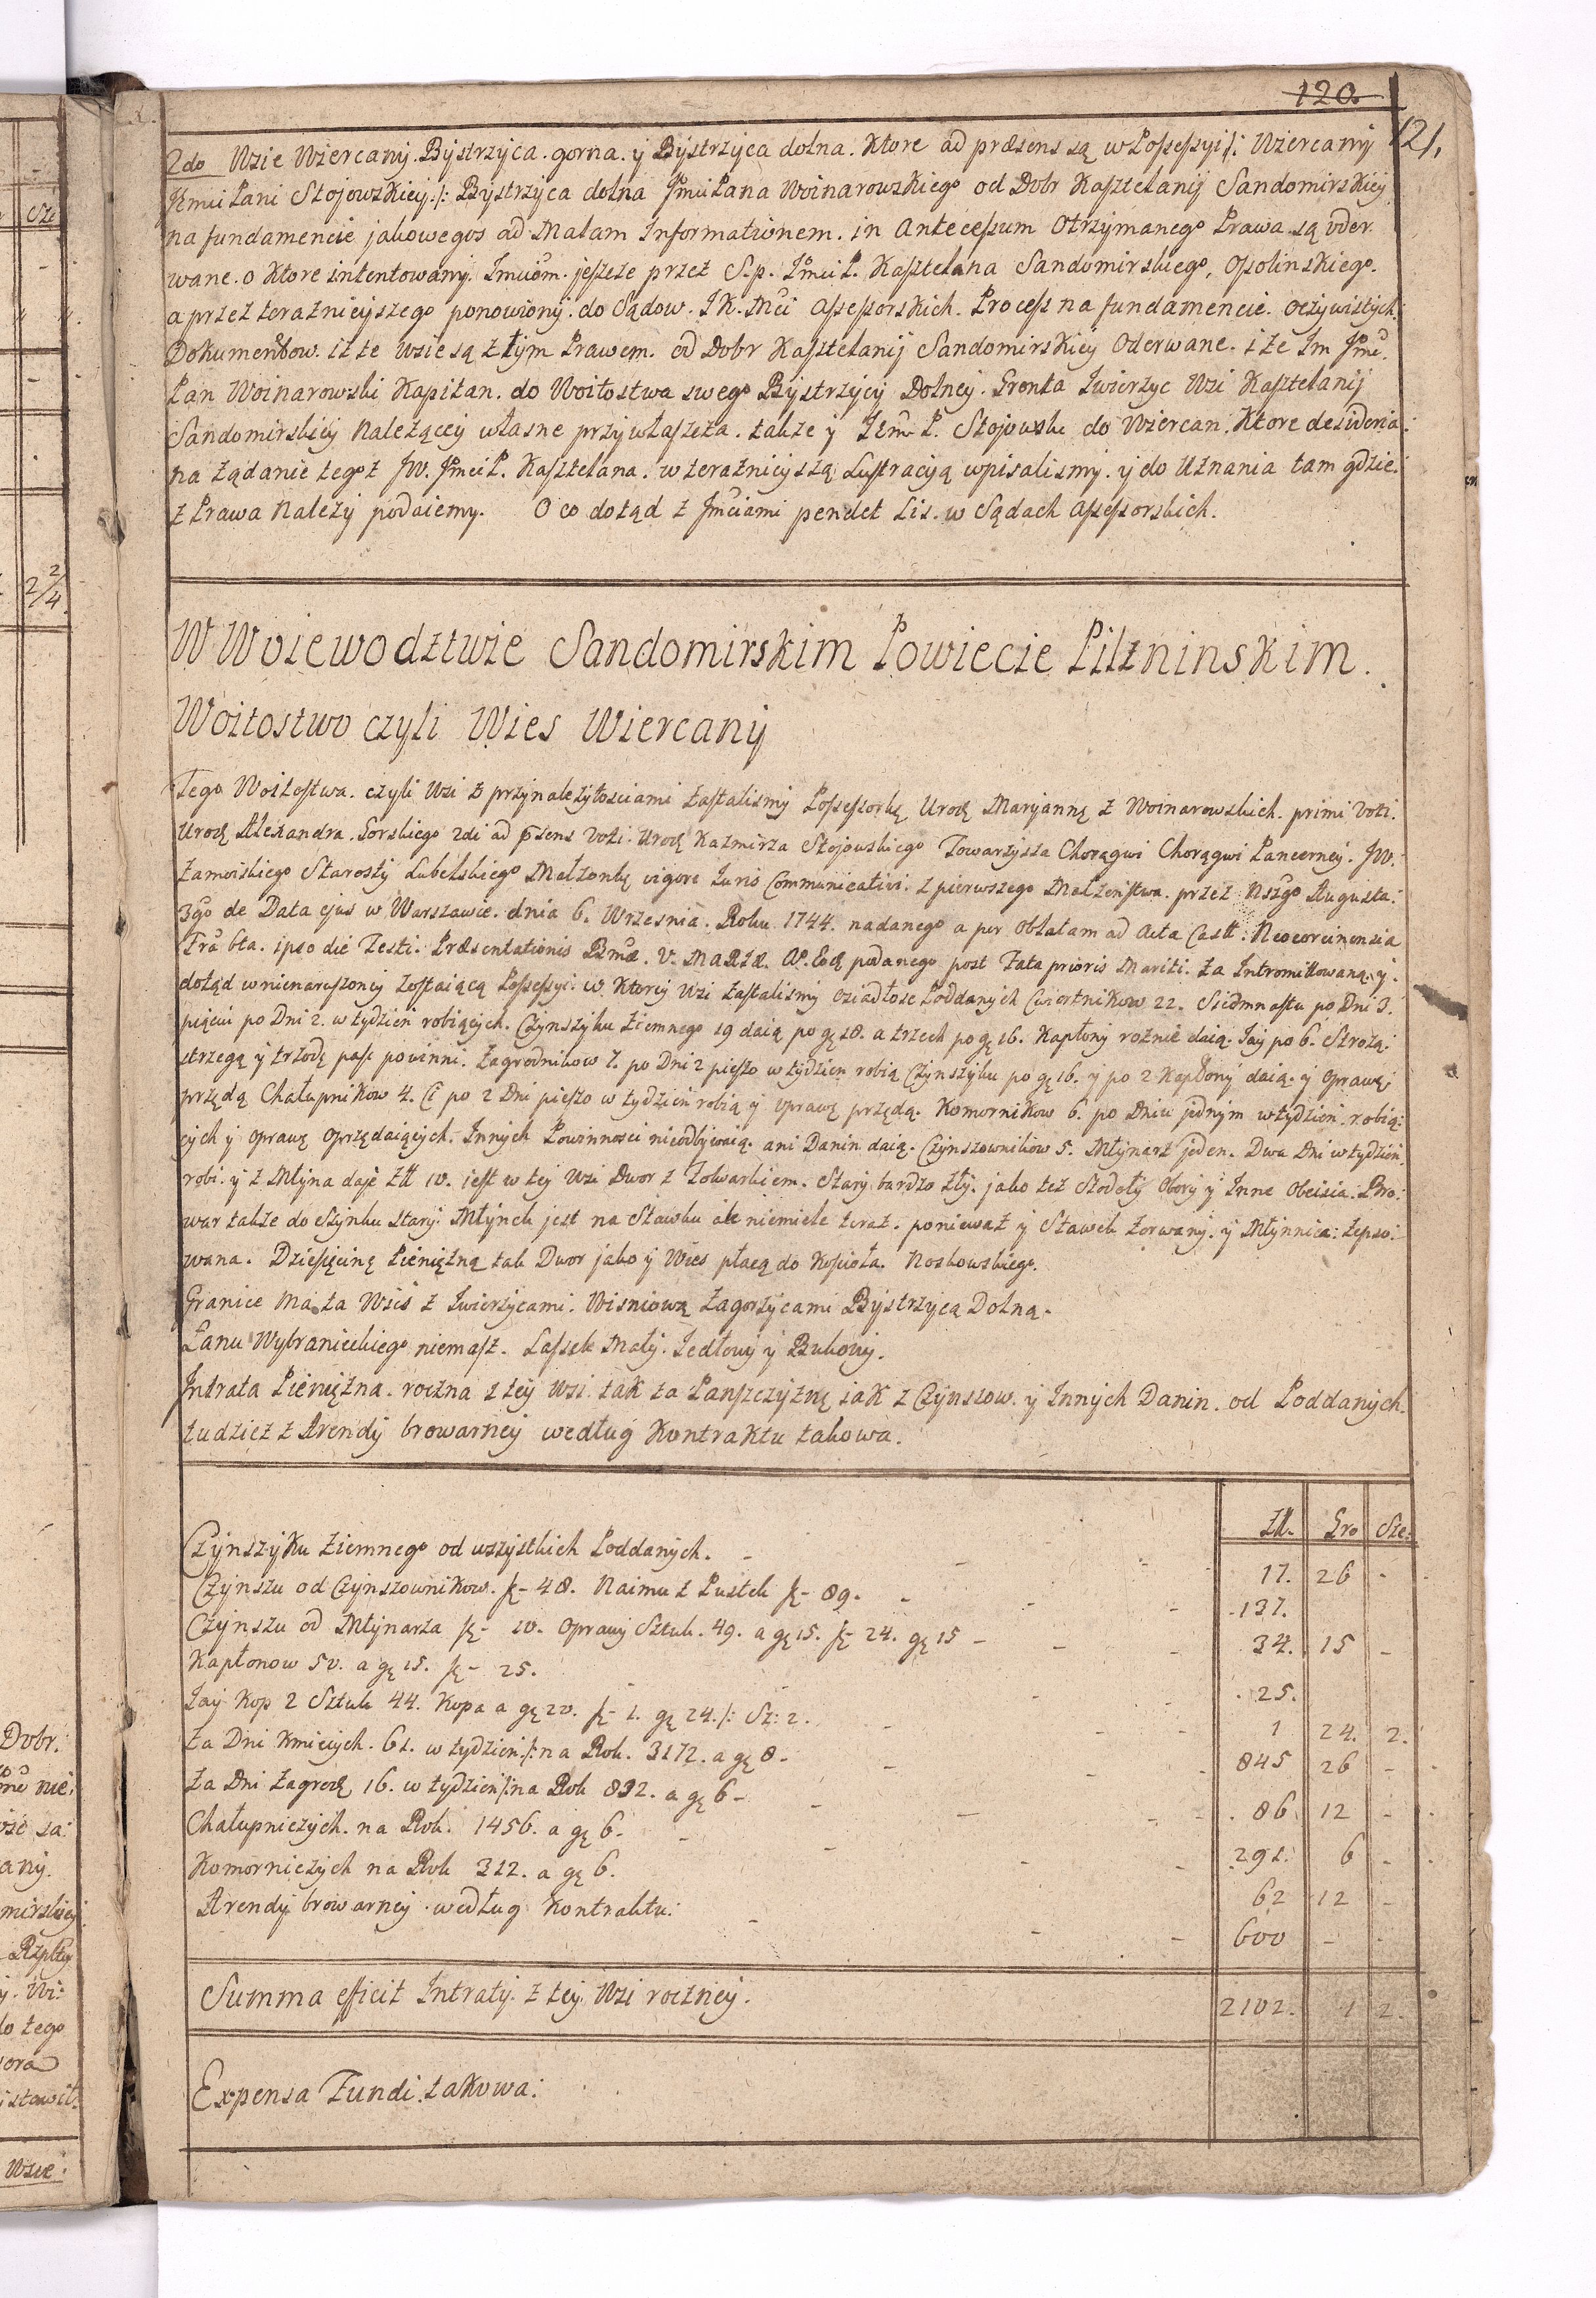 120.
121.
2do Wsie Wiercany. Bystrzyca. gorna. y Bystrzyca dolna. Ktore ad præsens są w Possessyi /: Wiercany
Jmci Pani Stojowskiey :/: Bystrzyca dolna Jmci Pana Woinarowskiego od Dobr Kasztelanij Sandomirskiey
na fundamencie jakowegos ad Malam Informationem. in Antecessum Otrzymanego Prawa są oder
wane. o Ktore intentowany. Imciom. jeszcze przez S.p. Jmci P. Kasztelana Sandomirskiego, Ossolinskiego.
a przez teraznieyszego ponowiony. do Sądow. J K. Mci Assessorskich. Process na fundamencie. oczywistych
Dokumentow. iz te Wsie są z tym Prawem. od Dobr Kasztelanij Sandomirskiey Oderwane. i ze Im Jmć.
Pan Woinarowski Kapitan. do Woitostwa swego Bystrzycy Dolney. Gronta Iwierzyc Wsi Kasztelanij
Sandomirskiey Nalezącey własne przywłaszcza. takze y Jmć P. Stojowska do Wiercan. Ktore desideria:
na ządanie tegoz JW. Jmci P. Kasztelana. w teraznieyszą Lustracyją wpisalismy. y do Uznania tam gdzie
z Prawa Nalezy podaiemy. O co dotąd z Jmciami pendet Lis. w Sądach Assessorskich.
W Woiewodztwie Sandomirskim Powiecie Pilzninskim.
Woitostwo czyli Wies Wiercany
Tego Woitostwa. czyli Wsi z przynalezytosciami zastalismy Possessorkę Urodz Maryannę z Woinarowskich. primi Voti.
Urodz Alexandra. Gorskiego 2di ad psens Voti. Urodz Kazmirza Stojowskiego Towarzysza Chorągwi Chorągwi Pancerney. JW.
Zamoiskiego Starosty Lubelskiego Małzonkę vigore Juris Communicativi. z pierwszego Małzenstwa. przez Nszgo Augusta:
3go de Data ejus w Warszawie. dnia 6. Wrzesnia. Roku 1744. nadanego a per Oblatam ad Acta Castr: Neocorcinensia
Fra 6ta. ipso die Festi. Præsentationis Bmæ. V. MARIÆ. podanego post Fata prioris Mariti. za Intromittowaną. y.
dotąd w nienaruszoney zostaiącą Possessyi. w Ktorey Wsi zastalismy osiadłosc Poddanych Cwiertnikow 22. Siedmnastu po Dni 3.
pięciu po Dni 2. w tydzien robiących. Czynszyku ziemnego 19 daią po gę 18. a trzech po gę 16. Kapłony roznie daią. Jay po 6. Strozą
strzegą y trzodę pasc powinni. Zagrodnikow 7. po Dni 2 pieszo w tydzien robią Czynszyku po gę 16. y po 2 Kapłony daią. y Oprawę
przędą Chałupnikow 4. Ci po 2 Dni pieszo w tydzien robią y oprawę przędą. Komornikow 6. po Dniu jednym w tydzien. robią:
cych y oprawę oprzędaiących. Innych Powinnosci nieodbywaią. ani Danin daią. Czynszownikow 5. Młynarz jeden. Dwa Dni w tydzien.
robi. y z Młyna daje Zł 10. jest w tey Wsi Dwor z Folwarkiem. Stary. bardzo zły. jako tez Stodoły Obory y Inne Obeiscia. Bro:
war takze do Szynku stary. Młynek jest na Stawku ale niemiele teraz. poniewaz y Stawek zerwany. y Młynnica: zepso:
wana. Dziesięcinę Pieniężną tak Dwor jako y Wies płacą do Koscioła. Noskowskiego.
Granice Ma ta Wies z Iwierzycami. Wisniową Zagorzycami Bystrzycą Dolną.
Łanu Wybranieckiego niemasz. Lassek Mały. Jedłowy y Bukowy.
Intrata Pieniężna. roczna z tey Wsi. tak za Panszczyznę iak z Czynszow. y Innych Danin. od Poddanych.
tudziez z Arendy browarney według Kontraktu takowa.
Zł. Gro Sze:
Czynszyku ziemnego od wszystkich Poddanych. - - - 17. 26 -
Czynszu od Czynszownikow. fę - 48. Naimu z Pustek fę - 89. - - - 137.
Czynszu od Młynarza fę - 10. Oprawy Sztuk. 49. a gę 15. fę - 24. gę 15 - - - 34. 15 -
Kapłonow 50. a gę 15. fę - 25. - - - 25.
Jay Kop 2 Sztuk 44. Kopa a gę 20. fę - 1. gę 24. /: Sz: 2. - - - 1 24. 2.
Za Dni Kmiecych. 61. w tydzien /: na Rok. 3172. a gę 8. - - - 845 26 -
Za Dni Zagrodz 16. w tydzien /: na Rok 832. a gę 6 - - - - 86 12 -
Chałupniczych. na Rok. 1456. a gę 6. - - - 291. 6 -
Komorniczych na Rok 312. a gę 6. - - - 62 12 -
Arendy browarney według Kontraktu: - - - 600 -
Summa efficit Intraty. z tey Wsi roczney. 2102. 1 2.
Expensa Fundi. takowa: